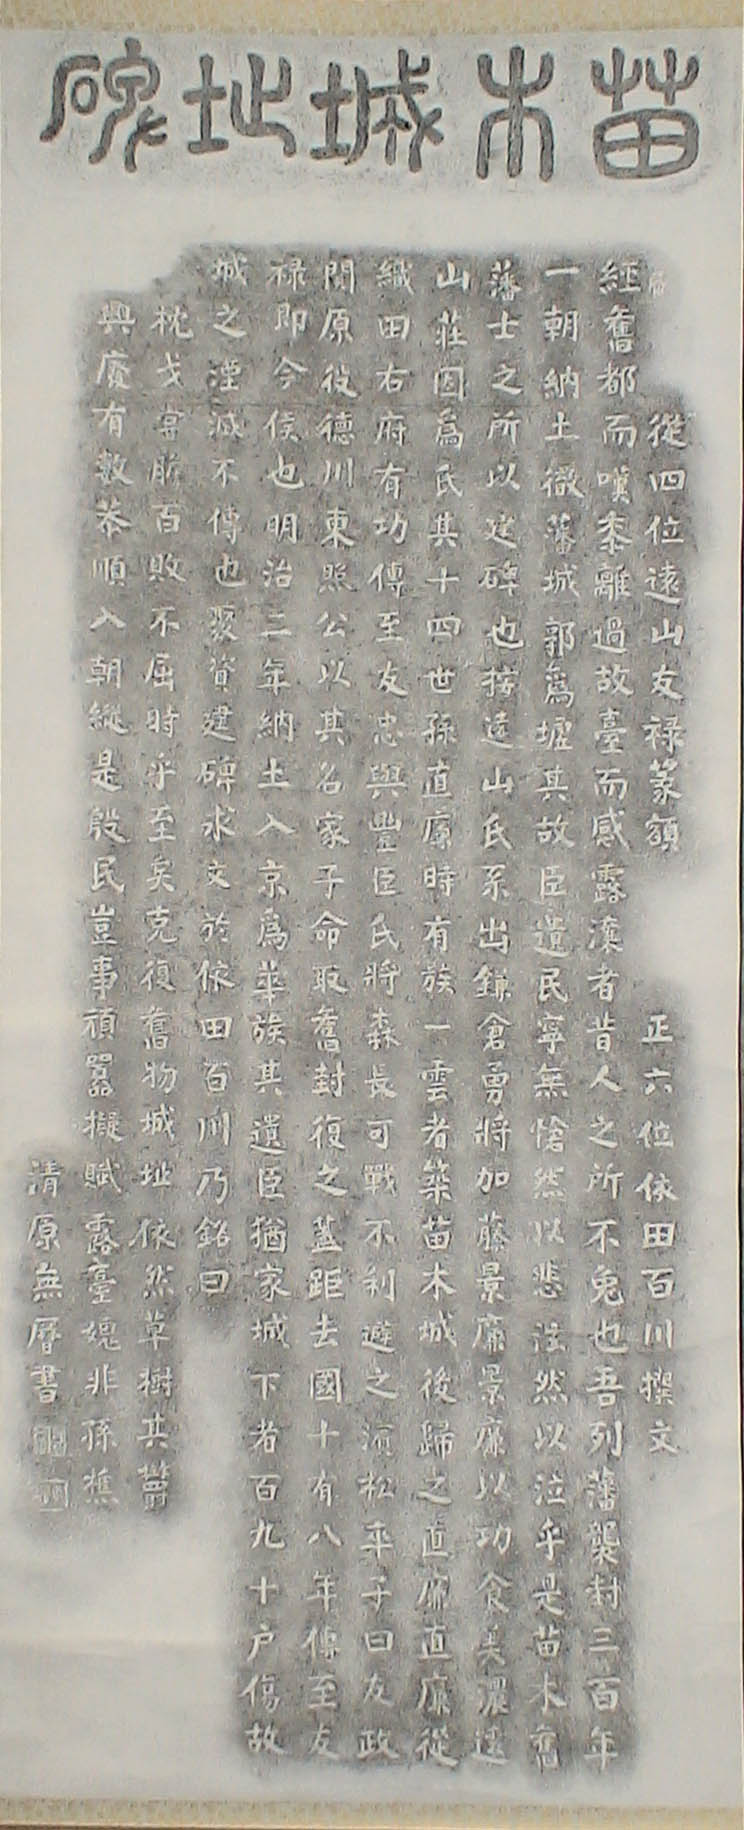 苗木城址碑
從四位遠山友禄篆額
正六位依田百川撰文
經舊都而嘆黍離過故臺而感露漙者昔人之所不免也吾列藩襲封三百年
一朝納土徹藩城郭爲墟其故臣遺民寧無愴然以悲泫然以泣乎是苗木舊
藩士之所以建碑也按遠山氏系出鎌倉勇將加藤景廉景廉以功食美濃遠
山莊因爲氏其十四世孫直廉時有族一雲者築苗木城後歸之直廉直廉從
織田右府有功傳至友忠與豐臣氏將森長可戰不利避之濱松卒子曰友政
関原役德川東照公以其名家子命取舊封復之蓋距去國十有八年傳至友
禄即今侯也明治二年納土入京爲華族其遺臣猶家城下者百九十戸傷故
城之湮滅不傳也聚資建碑求文於依田百川乃銘曰
枕戈甞胆百敗不屈時乎至矣克復舊物城址依然草樹其欝
興廢有数恭順入朝縱是殷民豈事頑嚚擬賦露臺媿非孫樵
清原無暦書